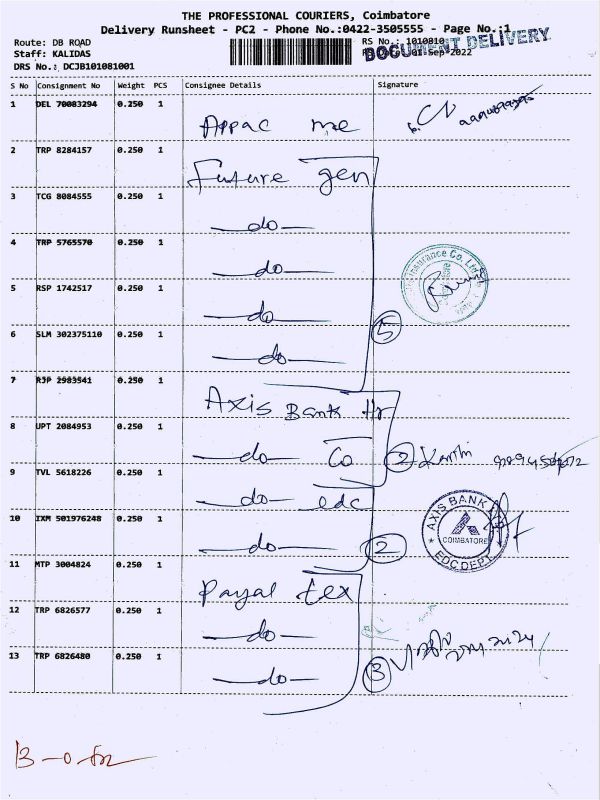 THE PROFESSIONAL COURIERS, Coimbatore
Delivery Runsheet - PC2 - Phone No.:0422-3505555 - Page No.:1
Route: DB ROAD
RS No.: 1010810
DOCUMENT DELIVERY
Staff: KALIDAS
01-Sep-2022
DRS No.: DCJB101081001
S No Consignment No Weight PCS Consignee Details Signature
1 DEL 70083294 0.250 1 Appac me
2 TRP 8284157 0.250 1 Future gen
3 TCG 8084555 0.250 1 -do-
4 TRP 5765570 0.250 1 -do-
5 RSP 1742517 0.250 1 -do-
Insurance Co. Ltd
5
6 SLM 302375110 0.250 1 -do-
7 RJP 2983541 0.250 1 Axis Bank Hr
8 UPT 2084953 0.250 1 -do- Co 2
9 TVL 5618226 0.250 1 -do- edc
10 IXM 501976248 0.250 1 -do- 2
AXIS BANK
COIMBATORE
EDC DEPT
11 MTP 3004824 0.250 1 Payal tex
12 TRP 6826577 0.250 1 -do-
13 TRP 6826480 0.250 1 -do- 3